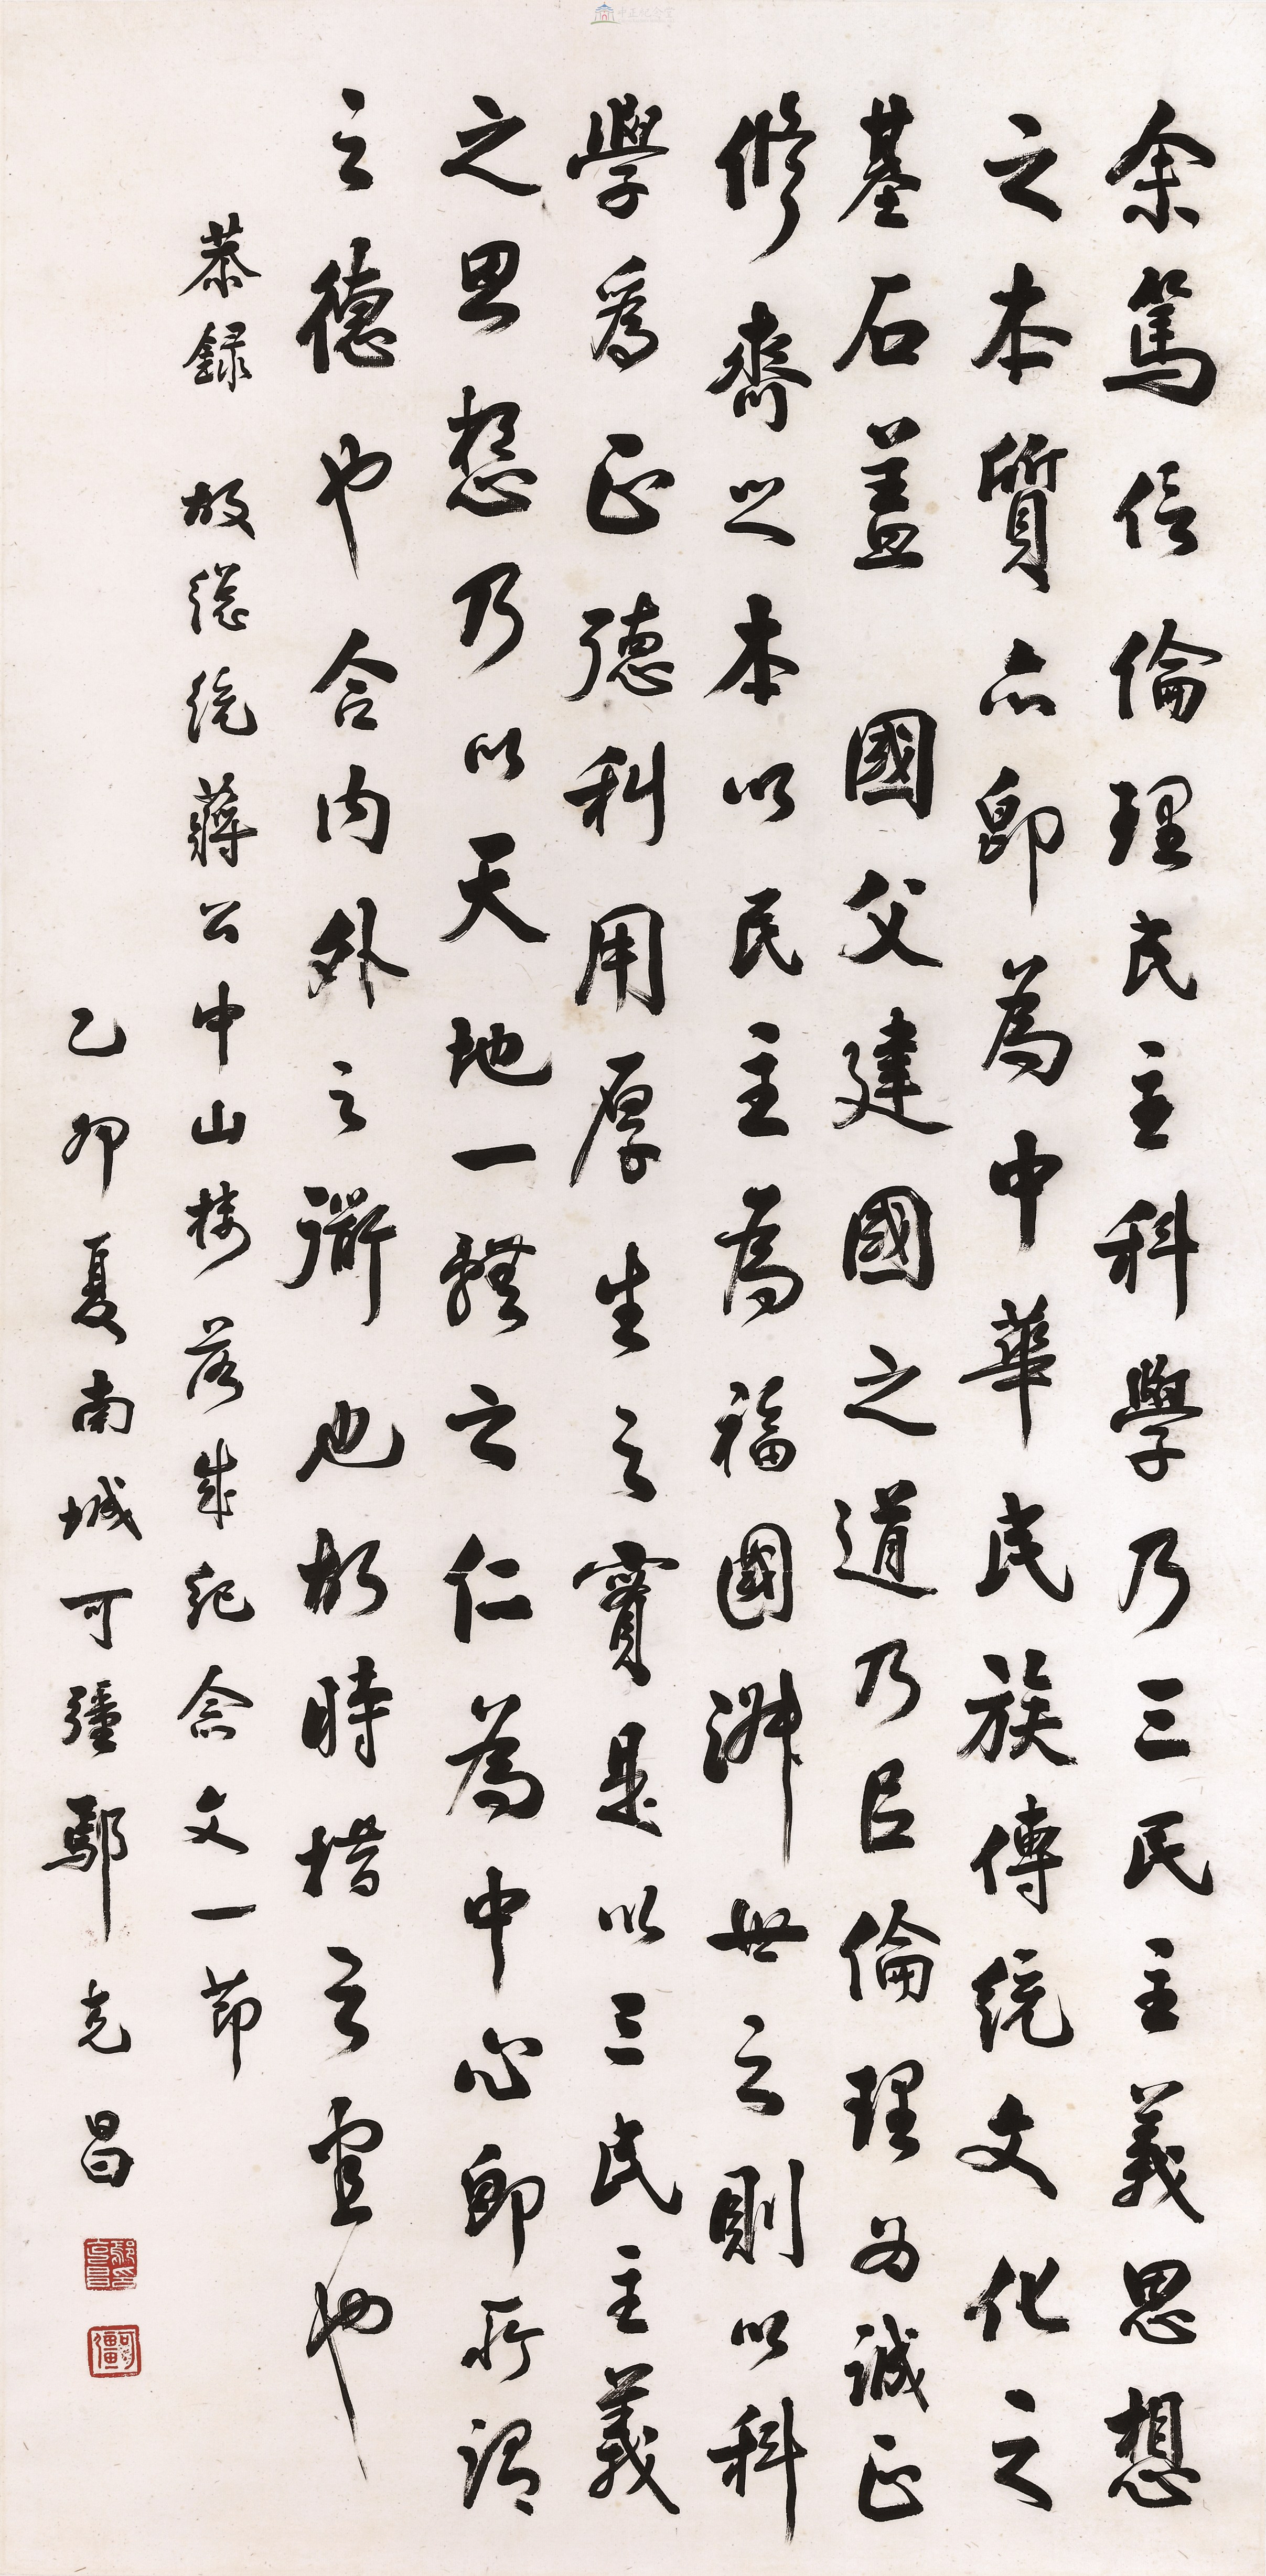 余篤信倫理民主科學乃三民主義思想
之本質亦即為中華民族傳統文化之
基石蓋 國父建國之道乃以倫理為誠正
修齊之本以民主為福國淑世之則以科
學為正德利用厚生之實是以三民主義
之思想乃以天地一體之仁為中心即所謂
之德也合內外之衜也故時措之宜也
恭録 故總統蔣公中山樓落成紀念文一節
乙卯夏南城可彊鄢克昌
中正紀念堂